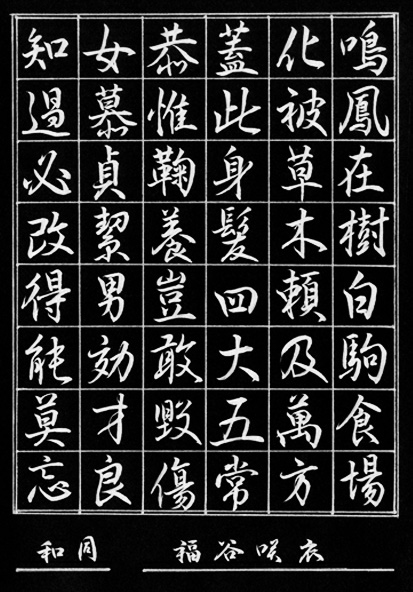 鳴鳳在樹白駒食場
化被草木頼及萬方
蓋此身髮四大五常
恭惟鞠養豈敢毀傷
女慕貞絜男効才良
知過必改得能莫忘
和同 福谷咲衣